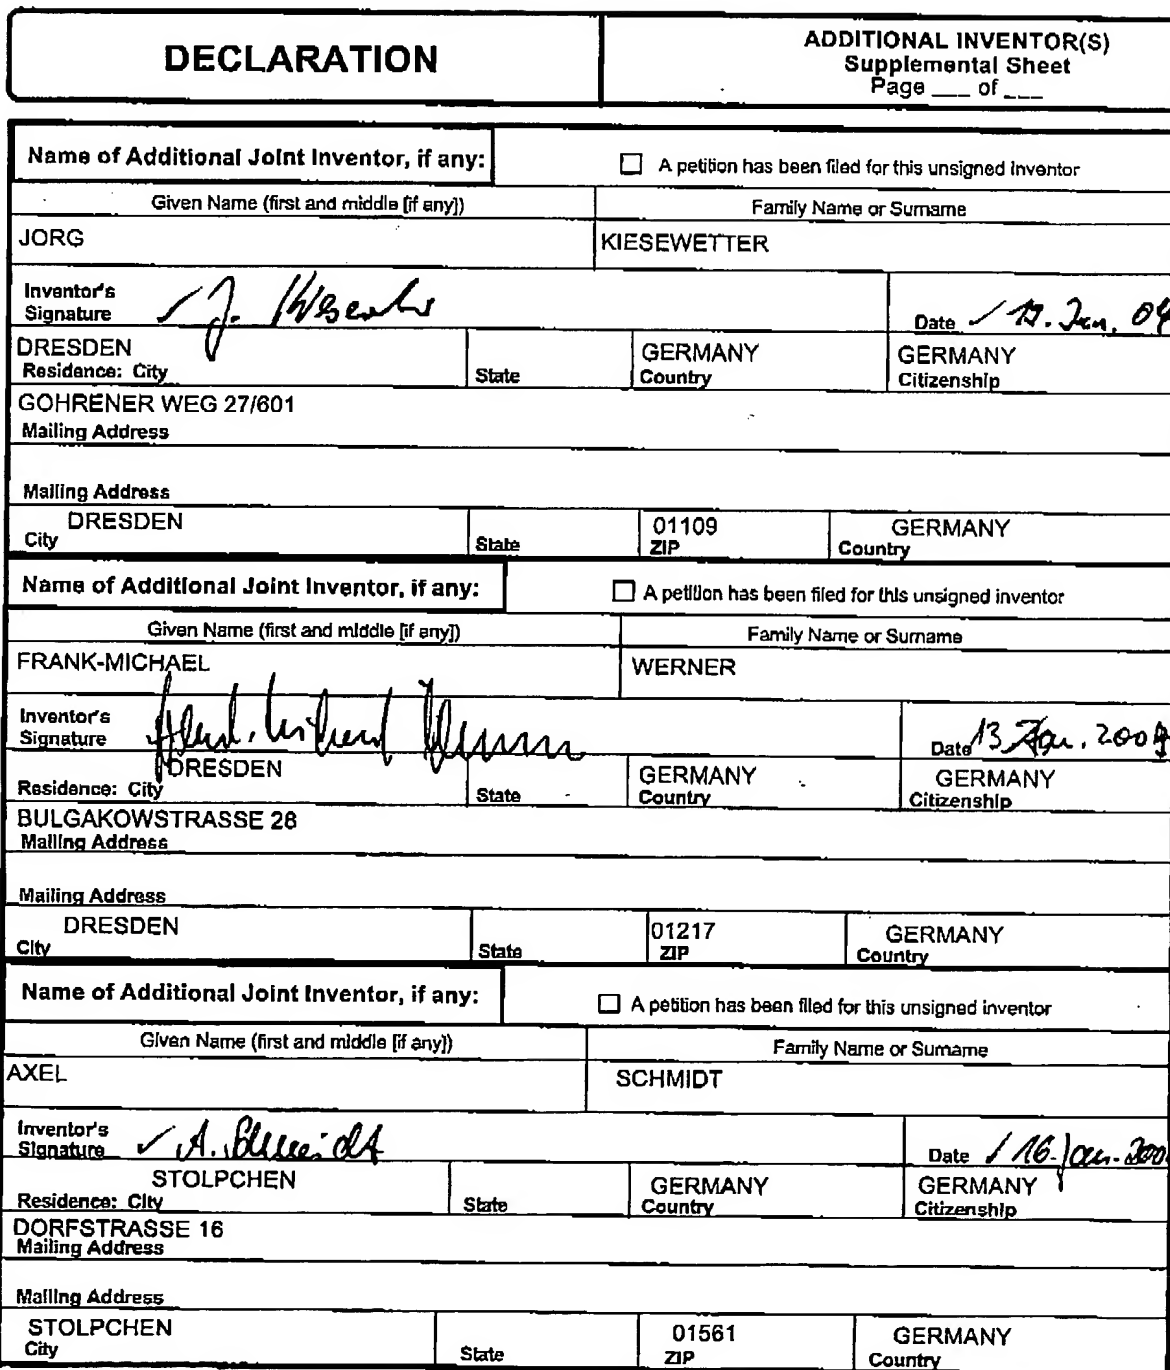 DECLARATION
ADDITIONAL INVENTOR(S)
Supplemental Sheet
Page ___ of ___
Name of Additional Joint Inventor, if any:
☐ A petition has been filed for this unsigned inventor
Given Name (first and middle [if any])
Family Name or Surname
JORG
KIESEWETTER
Inventor's
Signature
✓ J.
Date ✓ Jan. 04
DRESDEN
Residence: City
State
GERMANY
Country
GERMANY
Citizenship
GOHRENER WEG 27/601
Mailing Address
Mailing Address
DRESDEN
City
State
01109
ZIP
GERMANY
Country
Name of Additional Joint Inventor, if any:
☐ A petition has been filed for this unsigned inventor
Given Name (first and middle [if any])
Family Name or Surname
FRANK-MICHAEL
WERNER
Inventor's
Signature
Date 13. Jan. 2004
DRESDEN
Residence: City
State
GERMANY
Country
GERMANY
Citizenship
BULGAKOWSTRASSE 28
Mailing Address
Mailing Address
DRESDEN
City
State
01217
ZIP
GERMANY
Country
Name of Additional Joint Inventor, if any:
☐ A petition has been filed for this unsigned inventor
Given Name (first and middle [if any])
Family Name or Surname
AXEL
SCHMIDT
Inventor's
Signature
✓ A. Schmidt
Date ✓ 16. Jan. 200
STOLPCHEN
Residence: City
State
GERMANY
Country
GERMANY
Citizenship
DORFSTRASSE 16
Mailing Address
Mailing Address
STOLPCHEN
City
State
01561
ZIP
GERMANY
Country